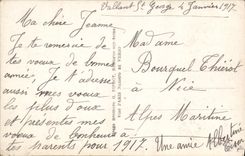 Vallant St George 4 Janvier 1917.
Ma chère Jeanne,
Je te remercie de
tes voeux de bonne
année, Je t'adresse
aussi mes voeux les
plus doux
et présentes mes
voeux de bonheurs à
tes parents pour 1917.
Madame
Bourquel Thiérot
à Nice
Alpes Maritime
Une amie Albertine